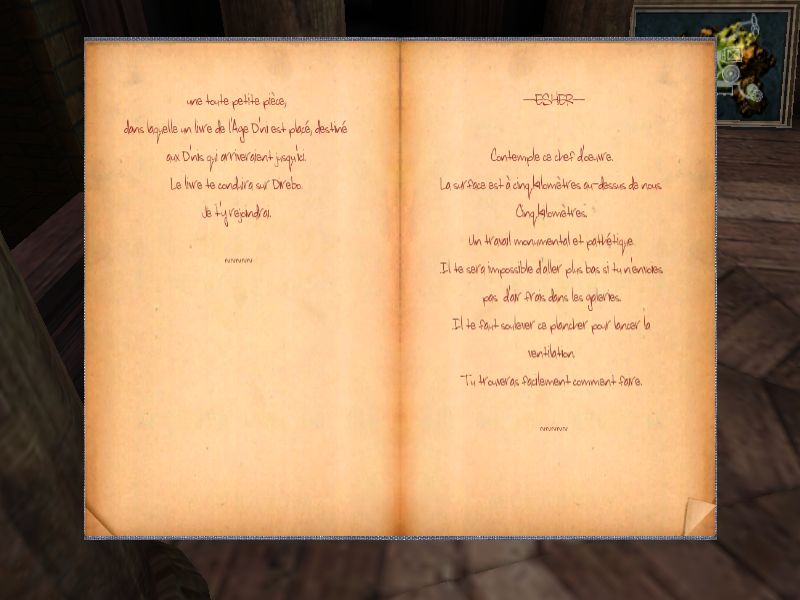 une toute petite pièce,
dans laquelle un livre de l'Âge D'ni est placé, destiné
aux D'nis qui arriveraient jusqu'ici.
Le livre te conduira sur Direbo.
Je t'y rejoindrai.
~~~~~
ESHER
Contemple ce chef d'oeuvre.
La surface est à cinq kilomètres au-dessus de nous.
Cinq kilomètres.
Un travail monumental et pathétique.
Il te sera impossible d'aller plus bas si tu n'envoies
pas d'air frais dans les galeries.
Il te faut soulever ce plancher pour lancer la
ventilation.
Tu trouveras facilement comment faire.
~~~~~